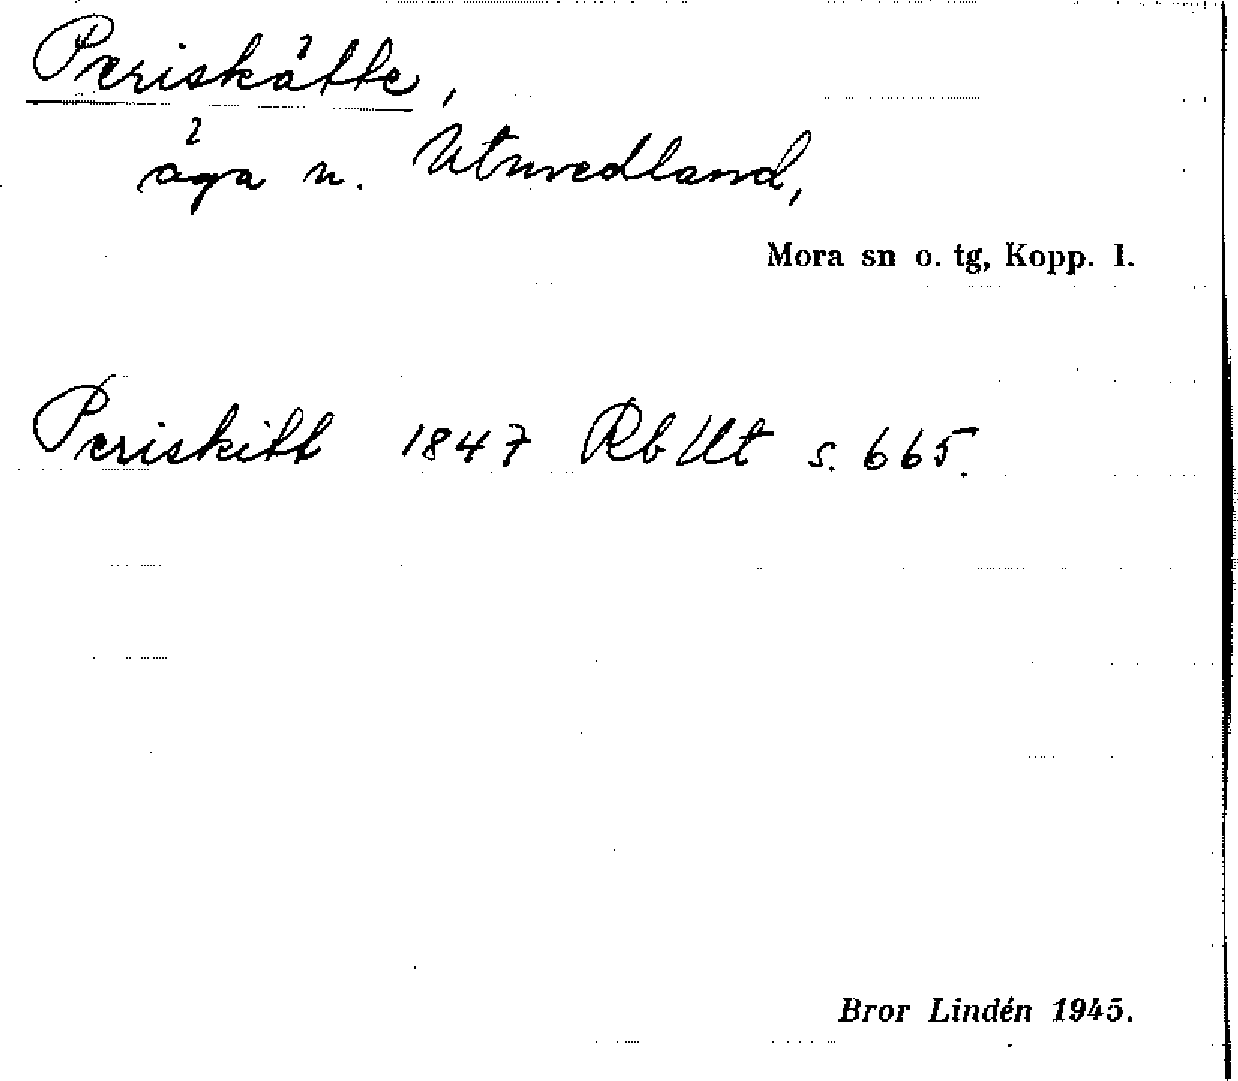 Periskåtte,
åga n. Utnvedland,
Mora sn o. tg, Kopp. l.
Periskitt 1847 Rb Ut s. 665.
Bror Lindén 1945.